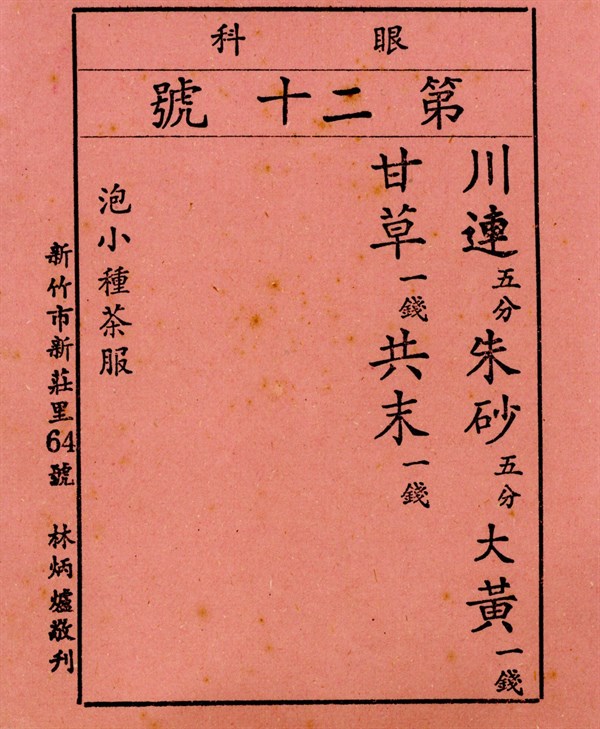 眼科
第二十號
川連五分朱砂五分大黃一錢
甘草一錢共末一錢
泡小種茶服
新竹市新莊里64號 林炳爐敬刋